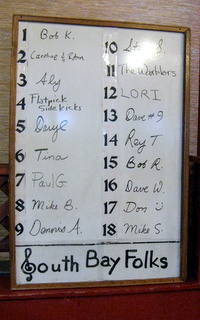 1 Bob K.
2
3 Aly
4 Flatpick
Sidekicks
5 Daryl
6 Tina
7 Paul G
8 Mike B.
9 Dennis A.
10 S.
11 The Warblers
12 LORI
13 Dave #9
14 Ray T
15 Bob R.
16 Dave W.
17 Don :)
18 Mike S.
South Bay Folks